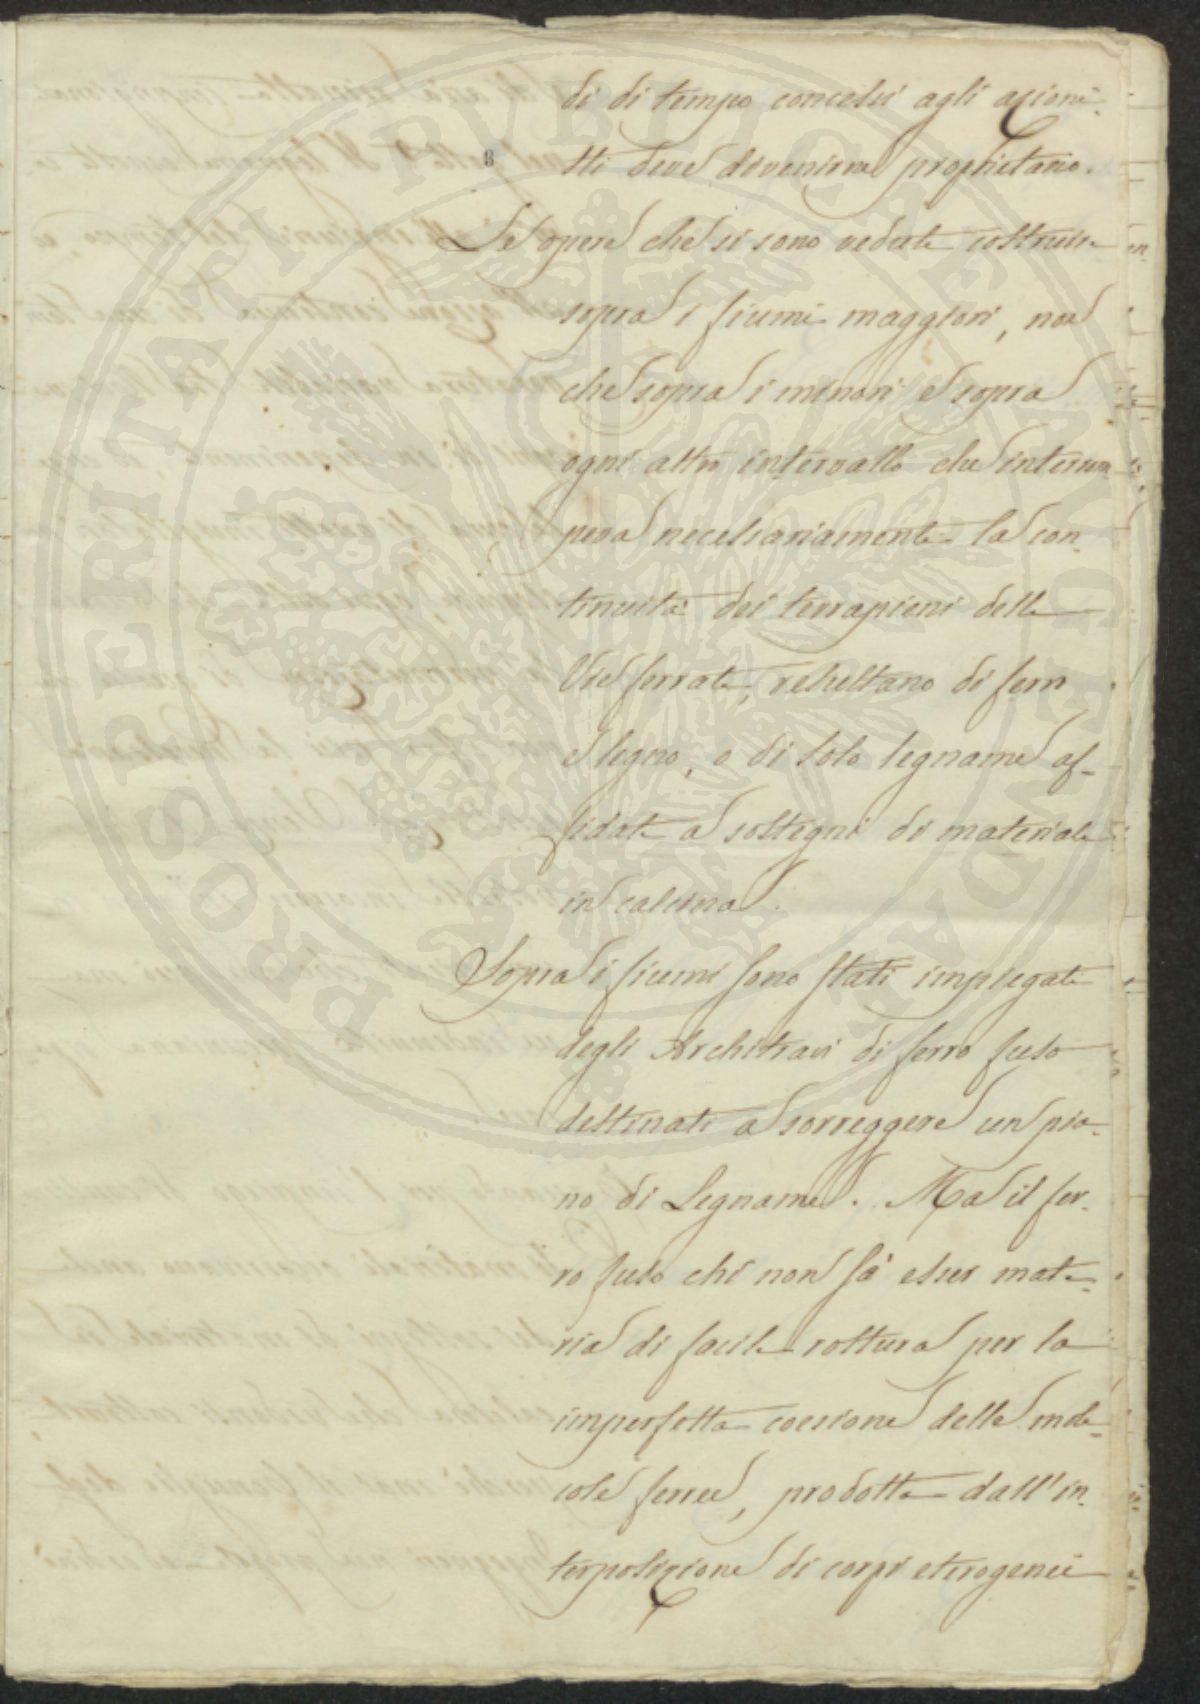 di di tempo concessi agli azioni-
sti deve divenirne proprietario.
8
Le opere che si sono vedute costruire
sopra i fiumi maggiori, non
che sopra i minori e sopra
ogni altro intervallo che interrom
peva necessariamente la con-
tinuità dei terrapieni delle
Vie ferrate, resultano di ferro
e legno, o di solo legname af-
fidate a sostegni di materiale
in calcina.
Sopra i fiumi sono stati impiegati
degli Architravi di ferro fuso
destinati a sorreggere un pia-
no di Legname. Ma il fer-
ro fuso chi non sà esser mate-
ria di facile rottura per la
imperfetta coesione delle mole-
cole ferree, prodotta dall'in-
terposizione di corpi eterogenei
PROSPERITATI PVBLICAE AVGENDAE